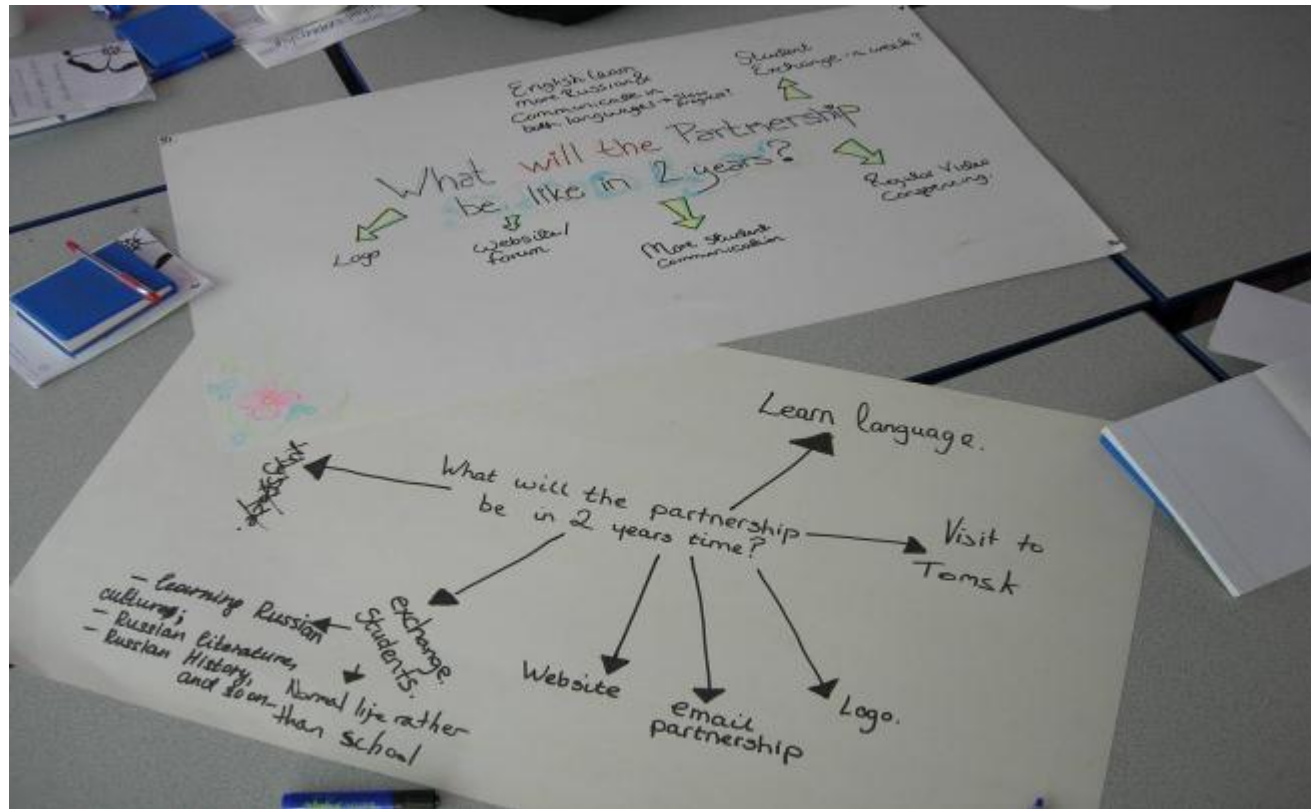 English learn
more Russian &
Communicate in
both languages → slow
Student
Exchange
week?
What will the Partnership
be like in 2 years?
Logo
Website/
forum
More Student
Communication
Regular Video
Conferencing.
Learn language.
What will the partnership
be in 2 years time?
Visit to
Tomsk
exchange
students.
- learning Russian
culture;
- Russian literature,
- Russian History,
and so on
Normal life rather
than school
Website
email
partnership
Logo.